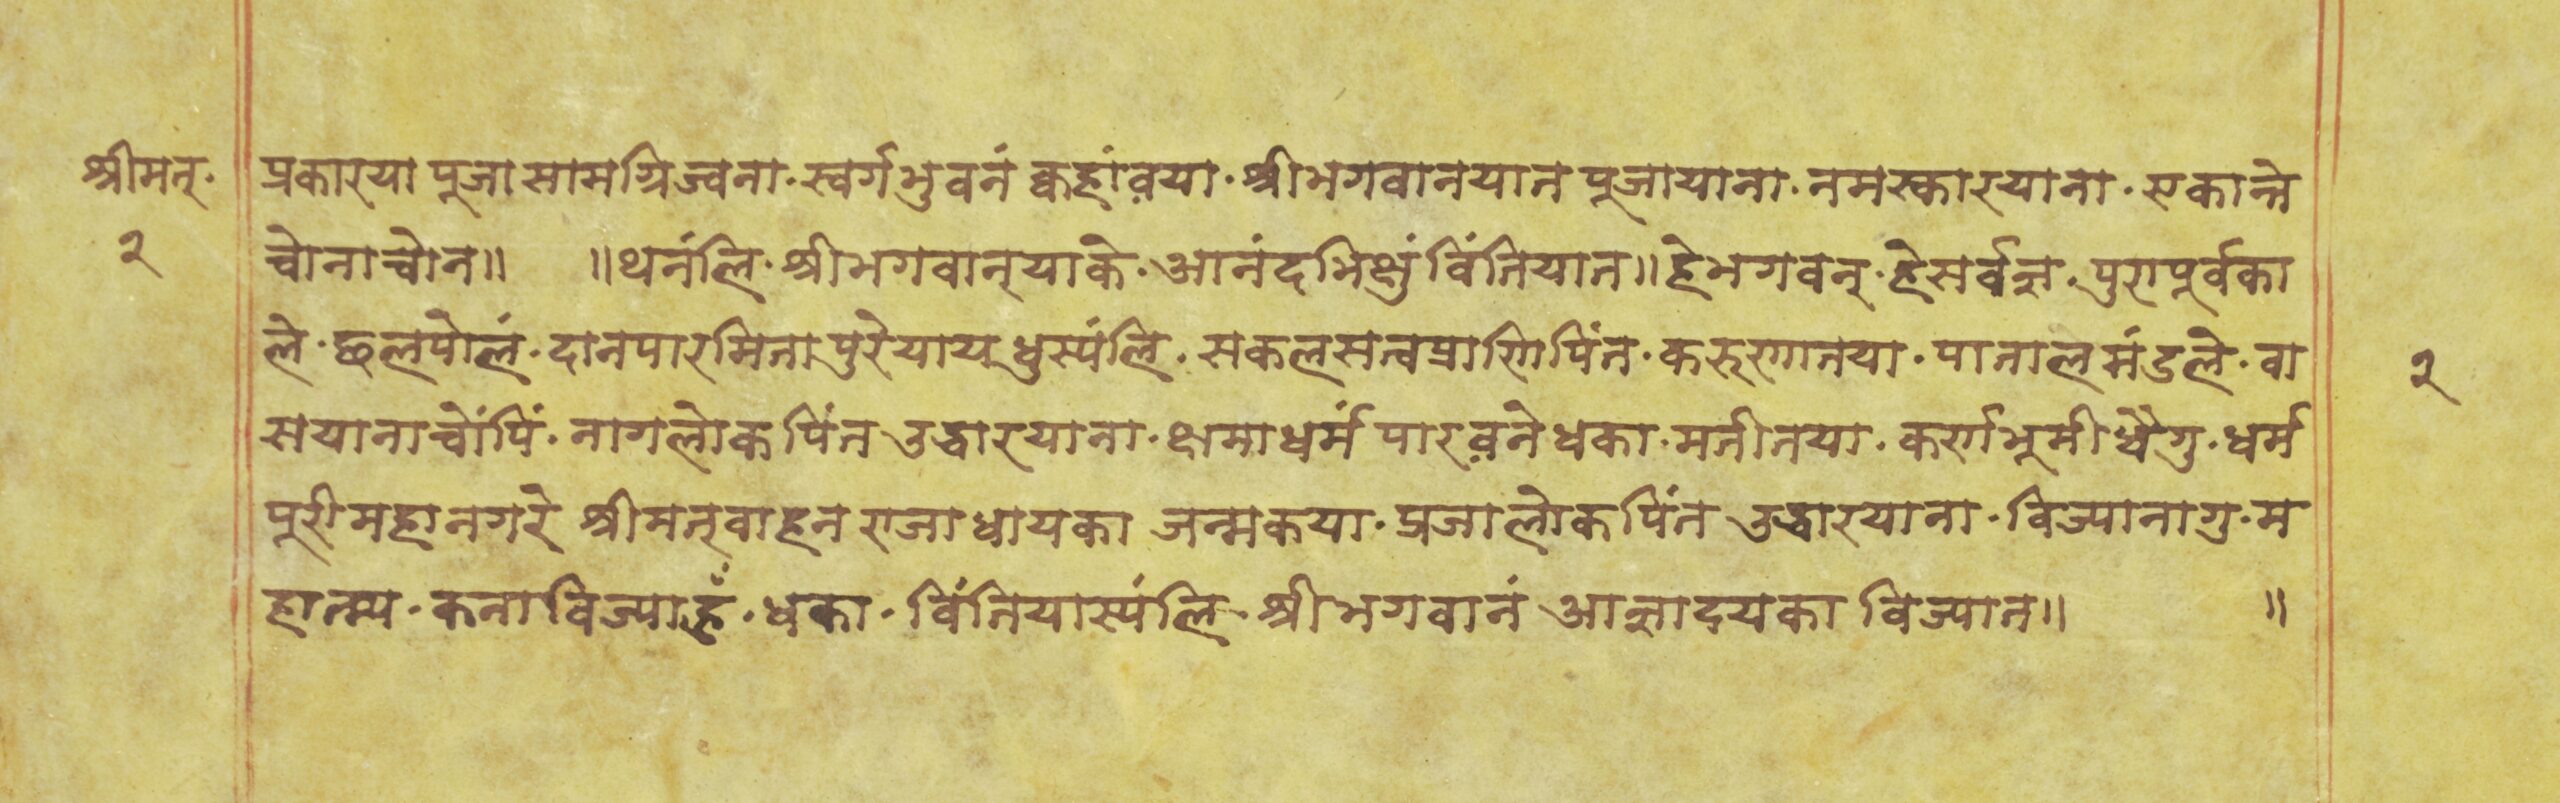 श्रीमत्·
२
प्रकारया पूजा सामग्रिज्वना· स्वर्गभुवनं क्वहांव़या· श्रीभगवानयात पूजायाना· नमस्कारयाना· एकान्ते
चोनाचोन॥ ॥थनंलि· श्रीभगवान्याके· आनंदभिक्षुं विंतियात॥ हेभगवन्· हेसर्वज्ञ· पुरापूर्वका
ले· छलपोलं· दानपारमिता पुरेयाय् धुस्यंलि· सकलसत्वप्राणिपिंत· करुणातया· पातालमंडले· वा
सयानाचोंपिं· नागलोकपिंत उद्धारयाना· क्षमाधर्म पारव़ने धका· मतीतया· कर्णाभूमी ध्यैगु· धर्म
पूरीमहानगरे श्रीमत्वाहन राजा धायका जन्मकया· प्रजालोकपिंत उद्धारयाना· विज्यानागु· म
हात्म्य· कना विज्याहुँ· धका· विंतियास्यंलि· श्रीभगवानं आज्ञादयका विज्यात॥ ॥
२